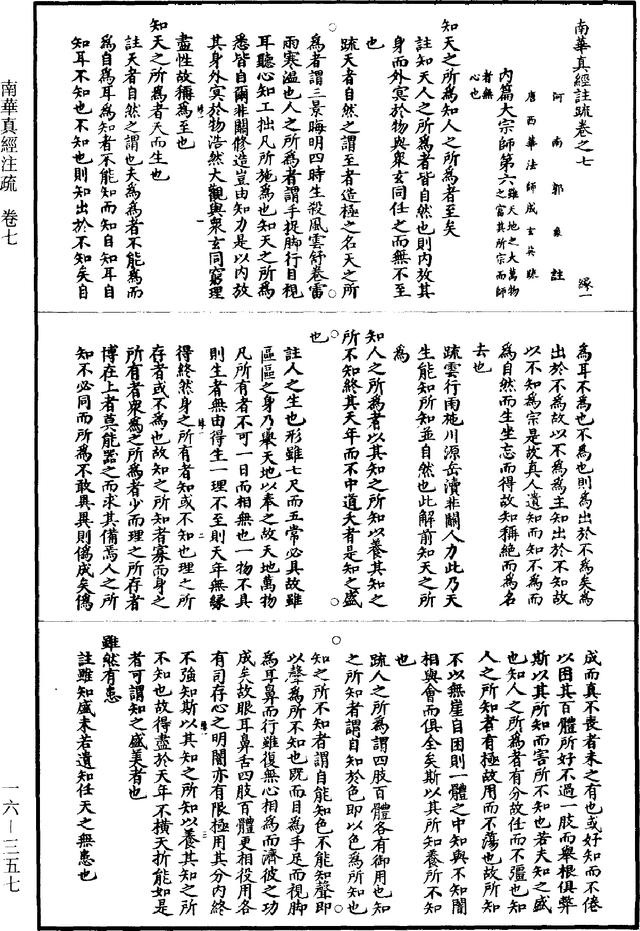 南華真經註疏卷之七
河南郭象註
緣一
唐西華法師成玄英疏
內篇大宗師第六雖天地之大萬物
之富其所宗而師
者無
心也
知天之所為知人之所為者至矣
註知天人之所為者皆自然也則內放其
身而外冥於物與衆玄同任之而無不至
也
疏天者自然之謂至者造極之名天之所
為者謂三景晦明四時生殺風雲舒卷雷
雨寒溫也人之所為者謂手捉脚行目視
耳聽心知工拙凡所施為也知天之所為
悉皆自爾非關修造豈由知力是以內放
其身外冥於物浩然大觀與衆玄同窮理
盡性故稱為至也
知天之所為者天而生也
註天者自然之謂也夫為為者不能為而
為自為耳為知者不能知而知自知耳自
知耳不知也不知也則知出於不知矣自
為耳不為也不為也則為出於不為矣為
出於不為故以不為為主知出於不知故
以不知為宗是故真人遺知而知不為而
為自然而生坐忘而得故知稱絕而為名
去也
疏雲行雨施川源岳瀆非關人力此乃天
生能知所知並自然也此解前知天之所
為
知人之所為者以其知之所知以養其知之
所不知終其天年而不中道夭者是知之盛
也
註人之生也形雖七尺而五常必具故雖
區區之身乃舉天地以奉之故天地萬物
凡所有者不可一日而相無也一物不具
則生者無由得生一理不至則天年無緣
得終然身之所有者知或不知也理之所
存者或不為也故知之所知者寡而身之
所有者衆為之所為者少而理之所存者
博在上者莫能器之而求其備焉人之所
知不必同而所為不敢異異則偽成矣偽
成而真不喪者未之有也或好知而不倦
以困其百體所好不過一肢而舉根俱弊
斯以其所知而害所不知也若夫知之盛
也知人之所為者有分故任而不彊也知
人之所知者有極故用而不蕩也故所知
不以無崖自困則一體之中知與不知闇
相與會而俱全矣斯以其所知養所不知
也
疏人之所為謂四肢百體各有御用也知
之所知者謂目知於色即以色為所知也
知之所不知者謂自能知色不能知聲即
以聲為所不知也既而目為手足而視脚
為耳鼻而行雖復無心相為而濟彼之功
成矣故眼耳鼻舌四肢百體更相役用各
有司存心之明闇亦有限極用其分內終
不強知斯以其知之所知以養其知之所
不知也故得盡於天年不橫夭折能如是
者可謂知之盛美者也
雖然有患
註雖知盛未若遺知任天之無患也
南華真經注疏　卷七
一六—三五七